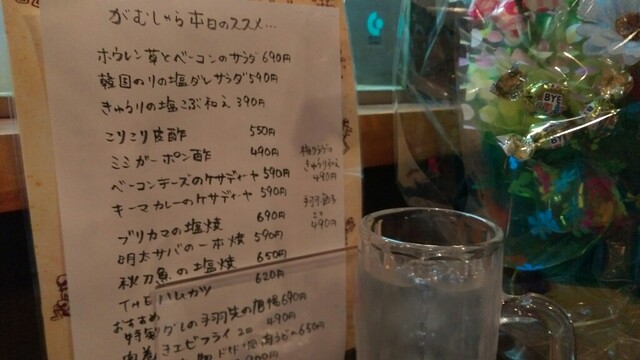 がむしゃら本日のススメ...
ホウレン草とベーコンのサラダ 690円
韓国のりの塩ダレサラダ 590円
きゅうりの塩こぶ和え 390円
こりこり皮酢 550円
ミミガーポン酢 490円
ベーコンチーズのケサディーヤ 590円
キーマカレーのケサディーヤ 590円
ブリカマの塩焼 690円
明太サバの一本焼 590円
秋刀魚の塩焼 650円
THEハムカツ 620円
おすすめ
特製ダレの手羽先の唐揚 690円
きエビフライ 2本 490円
650円
900円
きゅうり和え
490円
手羽餃子
490円
BYE